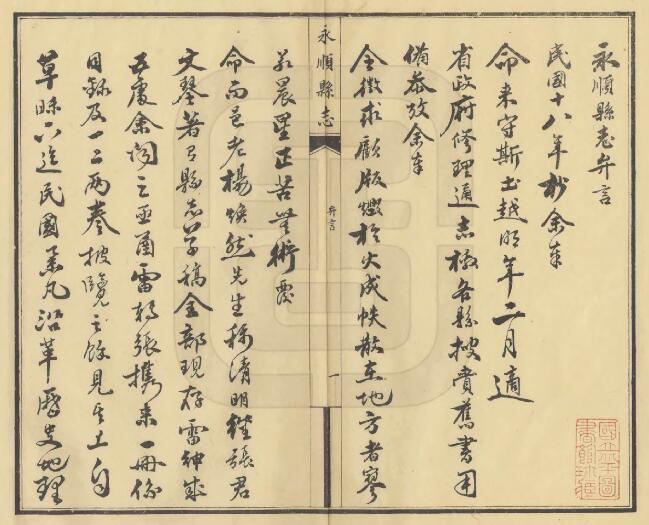 永順縣志弁言
民國十八年抄余奉
命来守斯土越明年二月適
省政府修理通志檄各縣搜賚舊書用
備叅攷余奉
令徴求歐版燬於火成帙散在地方者寥
永順縣志
弁言
一
若晨星正苦無術覆
命而邑老楊煥然先生称清明經張君
文琴著有縣志草稿全部現存雷紳成
五處余詢之亟函雷轉張攜来一冊係
目録及一二两巻披覽之餘見其上自
草昧下迄民國業凡沿革歷史地理